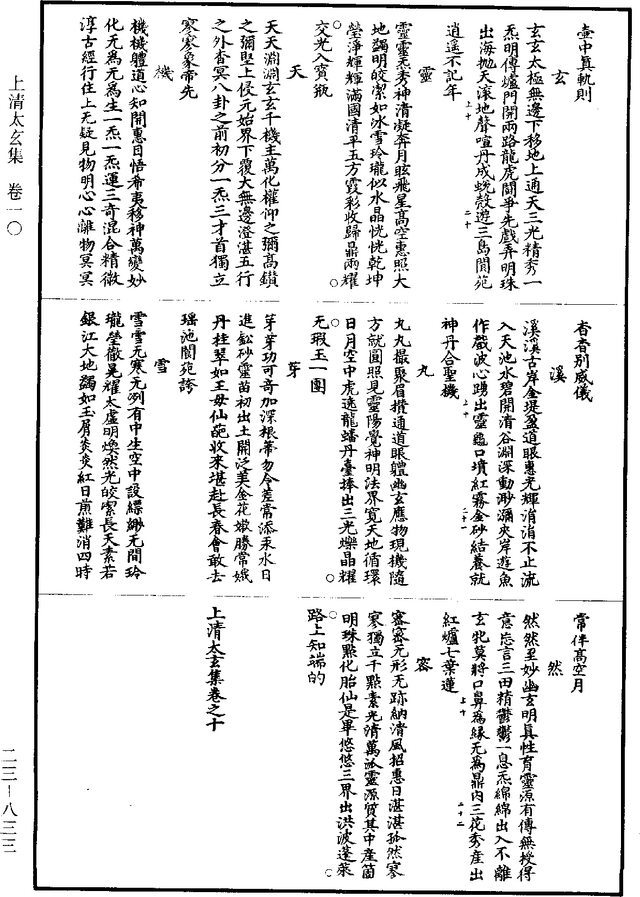 上清太玄集　卷一〇
二三—八三三
壺中真軌則
玄
玄玄太極無邊下移地上通天三光精秀一
炁明傳爐門開兩路龍虎鬭爭先戲弄明珠
出海抛天滚地聲喧丹成蛻殼遊三島閬苑
逍遥不記年
靈
靈靈炁秀神清凝奔月眩飛星高空惠照大
地蠲明皎潔如冰雪玲瓏似水晶恍恍乾坤
瑩淨輝輝滿國清平五方霞彩收歸鼎兩耀
交光入寶瓶
天
天天淵淵玄玄千機主萬化權仰之彌高鑽
之彌堅上侵元始界下覆大無邊澄湛五行
之外杳冥八卦之前初分一炁三才首獨立
寥寥象帝先
機
機機體道心知開惠目悟希夷移神萬變妙
化无爲元爲生一炁一炁運三奇混合精微
淳古經行住上无疑見物明心心離物冥冥
杳杳别威儀
溪
溪溪古岸金堤盈道眼惠光輝消消不止流
入天池水碧開清谷淵深動渺瀰夾岸遊魚
作戲波心踴出靈龜口噴紅霧金砂結養就
神丹合聖機
丸
丸丸撮聚眉攢通道眼體幽玄應物現機隨
方就圓照見靈陽覺神明法界寬天地循環
日月空中虎遶龍蟠丹臺捧出三光爍晶耀
无瑕玉一團
芽
芽芽功可奇加深根蒂勿令差常添汞水日
進鈆砂靈苗初出土開泛美金花嫩勝常娥
丹桂翠如王母仙葩收來堪赴長春會敢去
瑶池閬苑誇
雪
雪雪无寒无冽有中生空中設縹緲无間玲
瓏瑩徹晃耀太虛明煥然光皎潔長天素若
銀江大地蠲如玉屑炎炎紅日煎難消四時
常伴高空月
然
然然至妙幽玄明真性育靈源有傳無授得
意忘言三田精鬱鬱一息炁綿綿出入不離
玄牝莫將口鼻爲緣无爲鼎内三花秀産出
紅爐七葉蓮
密
密密无形无跡納清風招惠日湛湛孤然寥
寥獨立千點素光清萬派靈源質其中産箇
明珠點化胎仙是畢悠悠三界出洪波蓬萊
路上知端的
上清太玄集卷之十